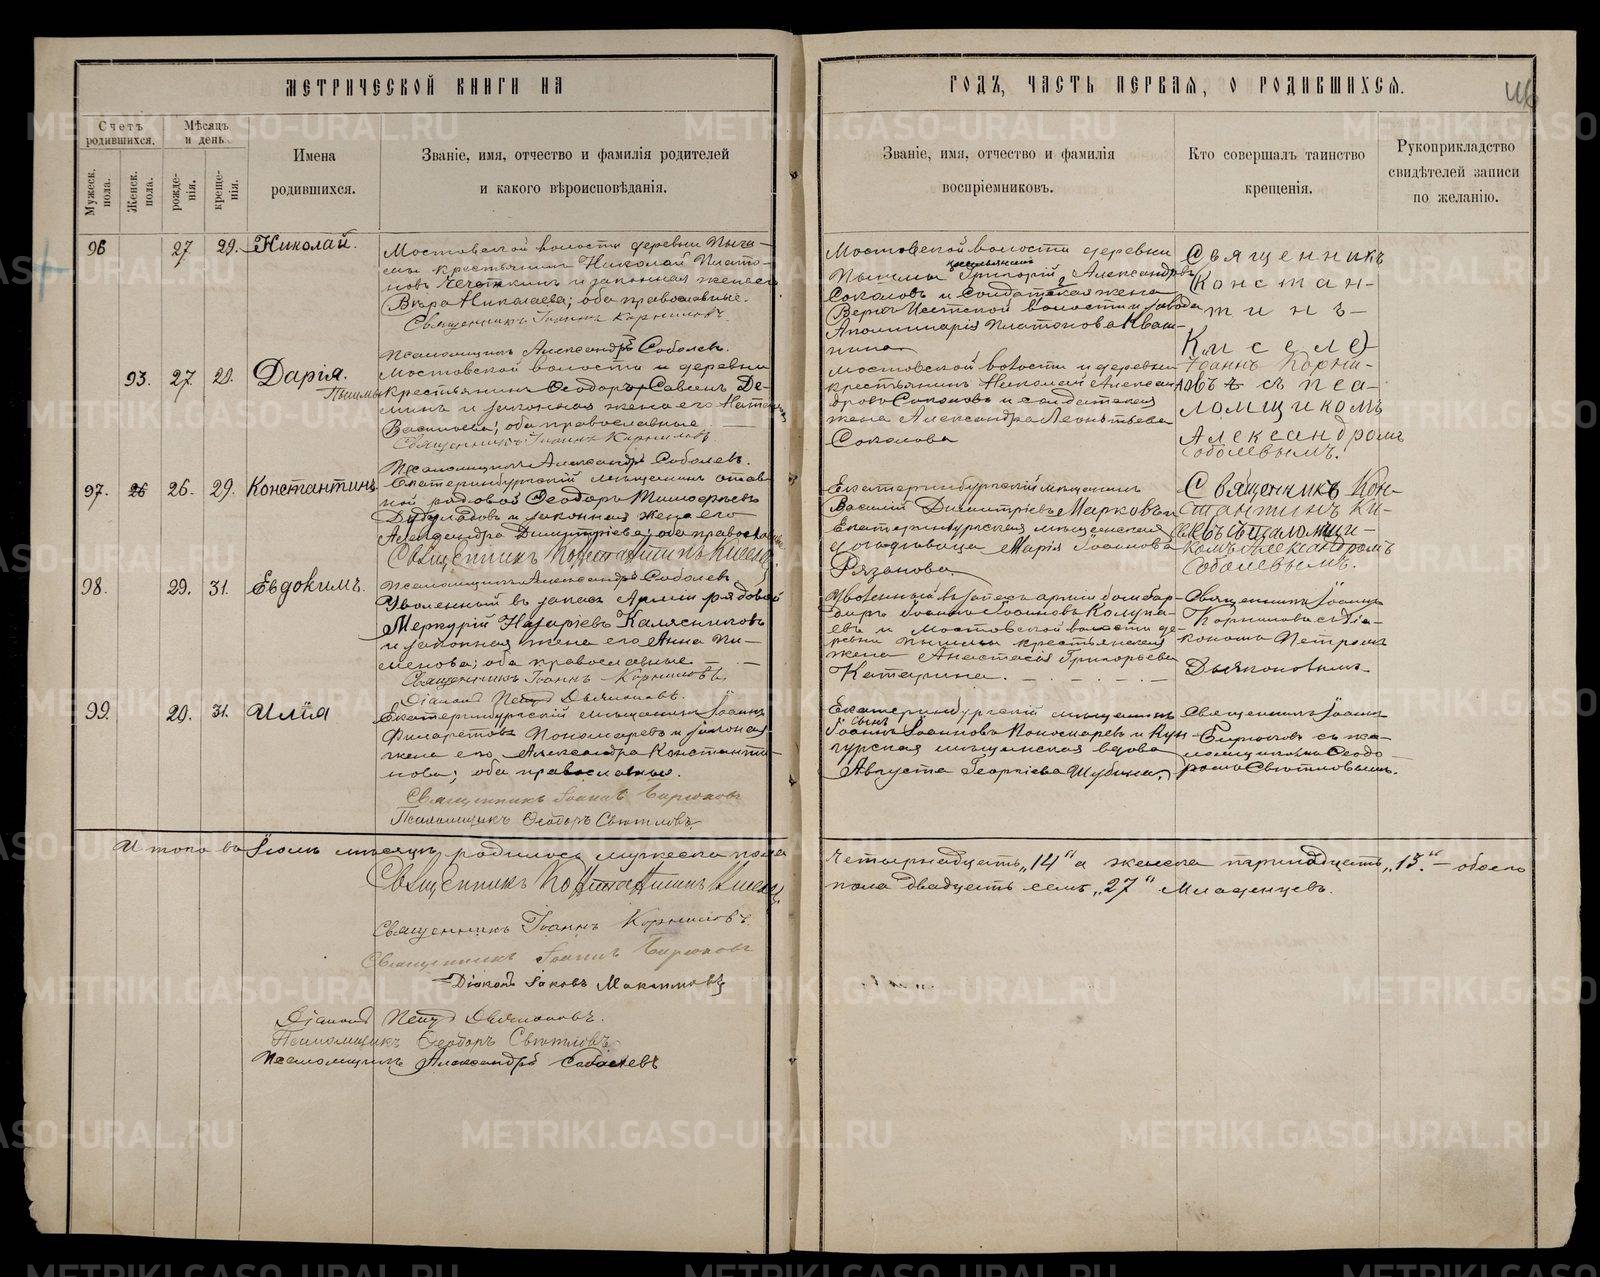 МЕТРИЧЕСКОЙ КНИГИ НА
Счетъ родившихся.
Мѣсяцъ и день.
Мужеск. пола.
Женск. пола.
рожденія.
крещенія.
Имена
родившихся.
Званіе, имя, отчество и фамилія родителей
и какого вѣроисповѣданія.
96
27
29.
Николай.
Мостовской волости деревни Пыш-
мы крестьянинъ Николай Плато-
новъ и законная жена его
Вѣра Николаева; оба православные.
Священникъ Іоаннъ Корниловъ.
Псаломщикъ Александръ Соболевъ.
93.
27
29.
Дарія.
Мостовской волости и деревни
Пышмы крестьянинъ Ѳеодоръ Савинъ Де-
минъ и законная жена его
Васильева; оба православные
Священникъ Іоаннъ Корниловъ.
Псаломщикъ Александръ Соболевъ.
97.
26.
29.
Константинъ
Екатеринбургскій мѣщанинъ отав-
ной рядовой Ѳеодоръ Тимоѳеевъ
и законная жена его
Александра Димитріева; оба православные
Священникъ Константинъ Киселевъ
Псаломщикъ Александръ Соболевъ.
98.
29.
31.
Евдокимъ.
Уволенный въ запасъ Арміи рядовой
Меркурій Назаріевъ Калясниковъ
и законная жена его Анна Пи-
менова; оба православные
Священникъ Іоаннъ Корниловъ.
Діаконъ Петръ Дьяконовъ.
99.
29.
31.
Илія
Екатеринбургскій мѣщанинъ Іоаннъ
Филаретовъ Пономаревъ и законная
жена его Александра Константи-
нова; оба православные.
Священникъ Іоаннъ Бирюковъ
Псаломщикъ Ѳеодоръ Свѣтловъ.
Итого въ Іюлѣ мѣсяцѣ родилось мужеска пола
Священникъ Константинъ Киселевъ
Священникъ Іоаннъ Корниловъ.
Священникъ Іоаннъ Бирюковъ
Діаконъ Іаковъ Максимовъ
Діаконъ Петръ Дьяконовъ.
Псаломщикъ Ѳеодоръ Свѣтловъ
Псаломщикъ Александръ Соболевъ
ГОДЪ, ЧАСТЬ ПЕРВАЯ, О РОДИВШИХСЯ.
46
Званіе, имя, отчество и фамилія
воспріемниковъ.
Кто совершалъ таинство
крещенія.
Рукоприкладство
свидѣтелей записи
по желанію.
Мостовской волости деревни
Пышмы крестьянинъ Григорій Александровъ
Соколовъ и солдатская жена
Верхъ Исетской волости и завода
Аполлинарія Платонова Кваш-
нина
Священникъ
Констан-
тинъ
Киселев
Мостовской волости и деревни
крестьянинъ Николай Алексан-
дровъ Соколовъ и солдатская
жена Александра Леонтьева
Соколова
Іоаннъ Корни-
ловъ съ пса-
ломщикомъ
Александромъ
Соболевымъ.
Екатеринбургскій мѣщанинъ
Василій Димитріевъ Марковъ и
Екатеринбургская мѣщанская
Марія Іоаннова
Рязанова.
Священникъ Кон-
стантинъ Ки-
селевъ съ псаломщи-
комъ Александромъ
Соболевымъ.
Уволенный въ запасъ арміи бомбар-
диръ Іоаннъ Іоанновъ Колупа-
евъ и Мостовской волости де-
ревни Пышмы крестьянская
жена Анастасія Григорьева
Катарина.
Священникъ Іоаннъ
Корниловъ съ діа-
кономъ Петромъ
Дьяконовымъ.
Екатеринбургскій мѣщанинъ
сынъ
Іоаннъ Іоанновъ Пономаревъ и Кун-
гурская мѣщанская вдова
Августа Георгіева Шубина.
Священникъ Іоаннъ
Бирюковъ съ пса-
ломщикомъ Ѳеодо-
ромъ Свѣтловымъ.
Четырнадцать „14“ а женска тринадцать „13“ - обоего
пола двадцать семь „27“ младенцевъ.
METRIKI.GASO-URAL.RU